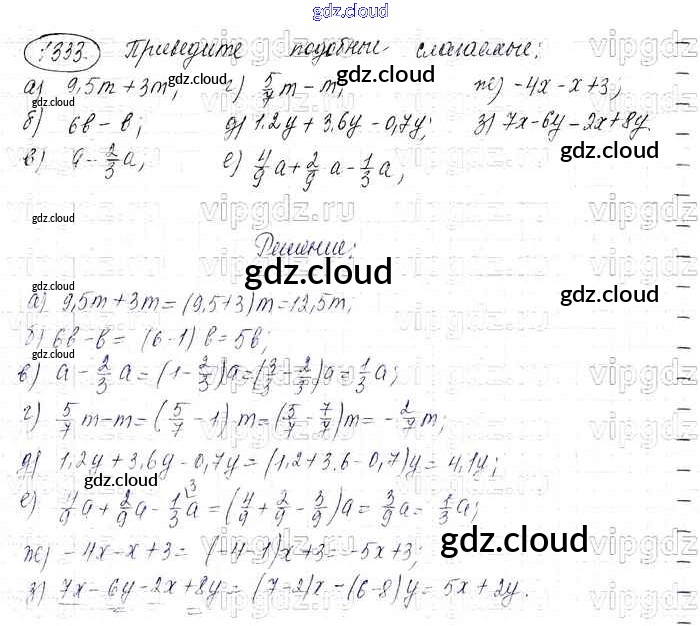 gdz.cloud
1333. Приведите подобные слагаемые:
а) 9,5m + 3m; г) 5/7 m - m; ж) -4x - x + 3;
б) 6в - в; д) 1,2y + 3,6y - 0,7y; з) 7x - 6y - 2x + 8y.
в) a - 2/3 a; е) 4/9 a + 2/9 a - 1/3 a;
Решение:
а) 9,5m + 3m = (9,5 + 3)m = 12,5m;
б) 6в - в = (6 - 1) в = 5в;
в) a - 2/3 a = (1 - 2/3)a = (3/3 - 2/3)a = 1/3 a;
г) 5/7 m - m = (5/7 - 1) m = (5/7 - 7/7)m = - 2/7 m;
д) 1,2y + 3,6y - 0,7y = (1,2 + 3,6 - 0,7)y = 4,1y;
е) 4/9 a + 2/9 a - 1/3 a \3 = (4/9 + 2/9 - 3/9)a = 3/9 a = 1/3 a;
ж) -4x - x + 3 = (-4 - 1)x + 3 = -5x + 3;
з) 7x - 6y - 2x + 8y = (7 - 2)x - (6 - 8)y = 5x + 2y.
gdz.cloud
gdz.cloud
gdz.cloud
gdz.cloud
gdz.cloud
gdz.cloud
gdz.cloud
gdz.cloud
gdz.cloud
gdz.cloud
gdz.cloud
gdz.cloud
gdz.cloud
gdz.cloud
vipgdz.ru
vipgdz.ru
vipgdz.ru
vipgdz.ru